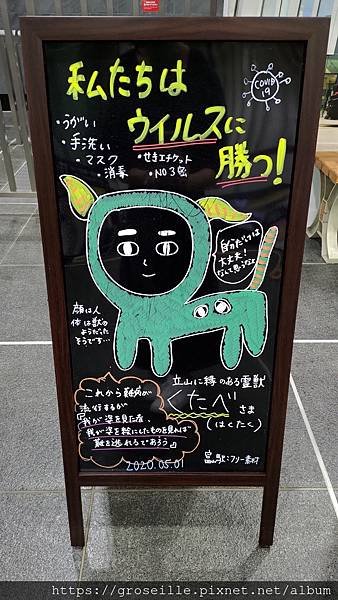 私たちは
ウイルスに
勝つ!
COVID
19
・うがい
・手洗い
・マスク
・消毒
・せきエチケット
・NO3密
自分だけは
大丈夫!
なんて思うなよ
顔は人
体は獣の
ようだった
そうです…
これから難病が
流行するが
『我が姿を見た者、
我が姿を絵にしたものを見れば
難を逃れるであろう』
立山に縁のある霊獣
くたべさま
(はくたく)
2020.05.01
https://groseille.pixnet.net/album